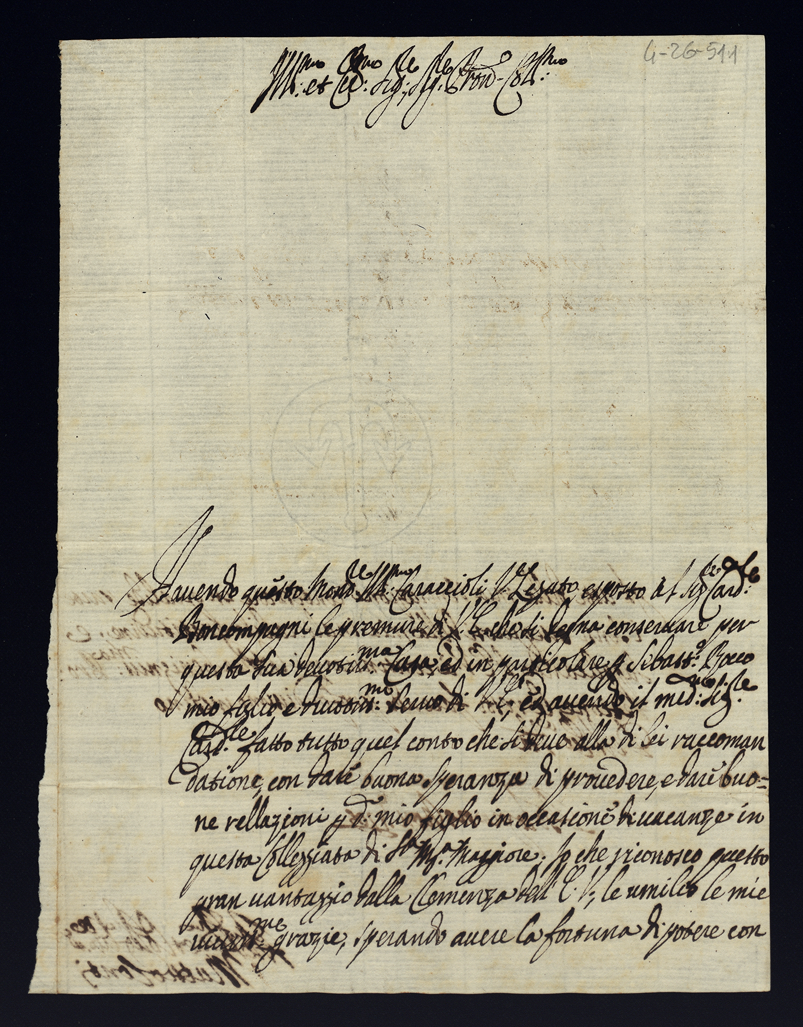 4-26-511
Ill.mo et Ecc.mo Sig.re Sig.re Pron Coll.mo
Havendo questo Mons.re Ill.mo Caraccioli V. Legato esposto al Sig.re Card.le
Boncompagni le premure di V. E. che si degna conservare per
questa sua devotiss.ma Casa, ed in particolare p Sebast.o Rocco
mio figlio e devotiss.mo servo di V. E. ed avendo il med.mo Sig.re
Card.le fatto tutto quel conto che si deve alla di Lei raccoman
datione, con dare buona speranza di provedere, e dare buo=
ne rellazioni p d.o mio figlio in occasione di vacanze in
questa Colleggiata di S.ta M.a Maggiore. Io che riconosco questo
gran vantaggio dalla Clemenza dell' E. V., le umilio le mie
grazie, sperando avere la fortuna di potere con